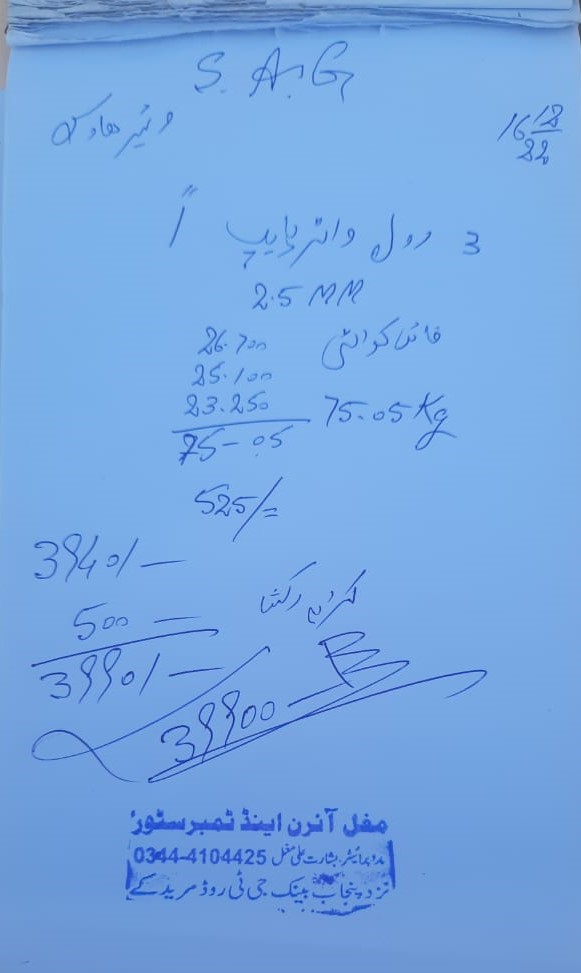 S. A. G
16 12/22
3 رول واٹر پایپ 1"
2.5 MM
26.700 فائن کوالٹی
25.100
23.250 75.05 Kg
75-05
525/=
39401/-
500 - کرایہ رکشا
39901/-
39900-
مغل آئرن اینڈ ٹمبر سٹور
پروپرائیٹر بشارت علی مغل 0344-4104425
نزد پنجاب بینک جی ٹی روڈ مریدکے